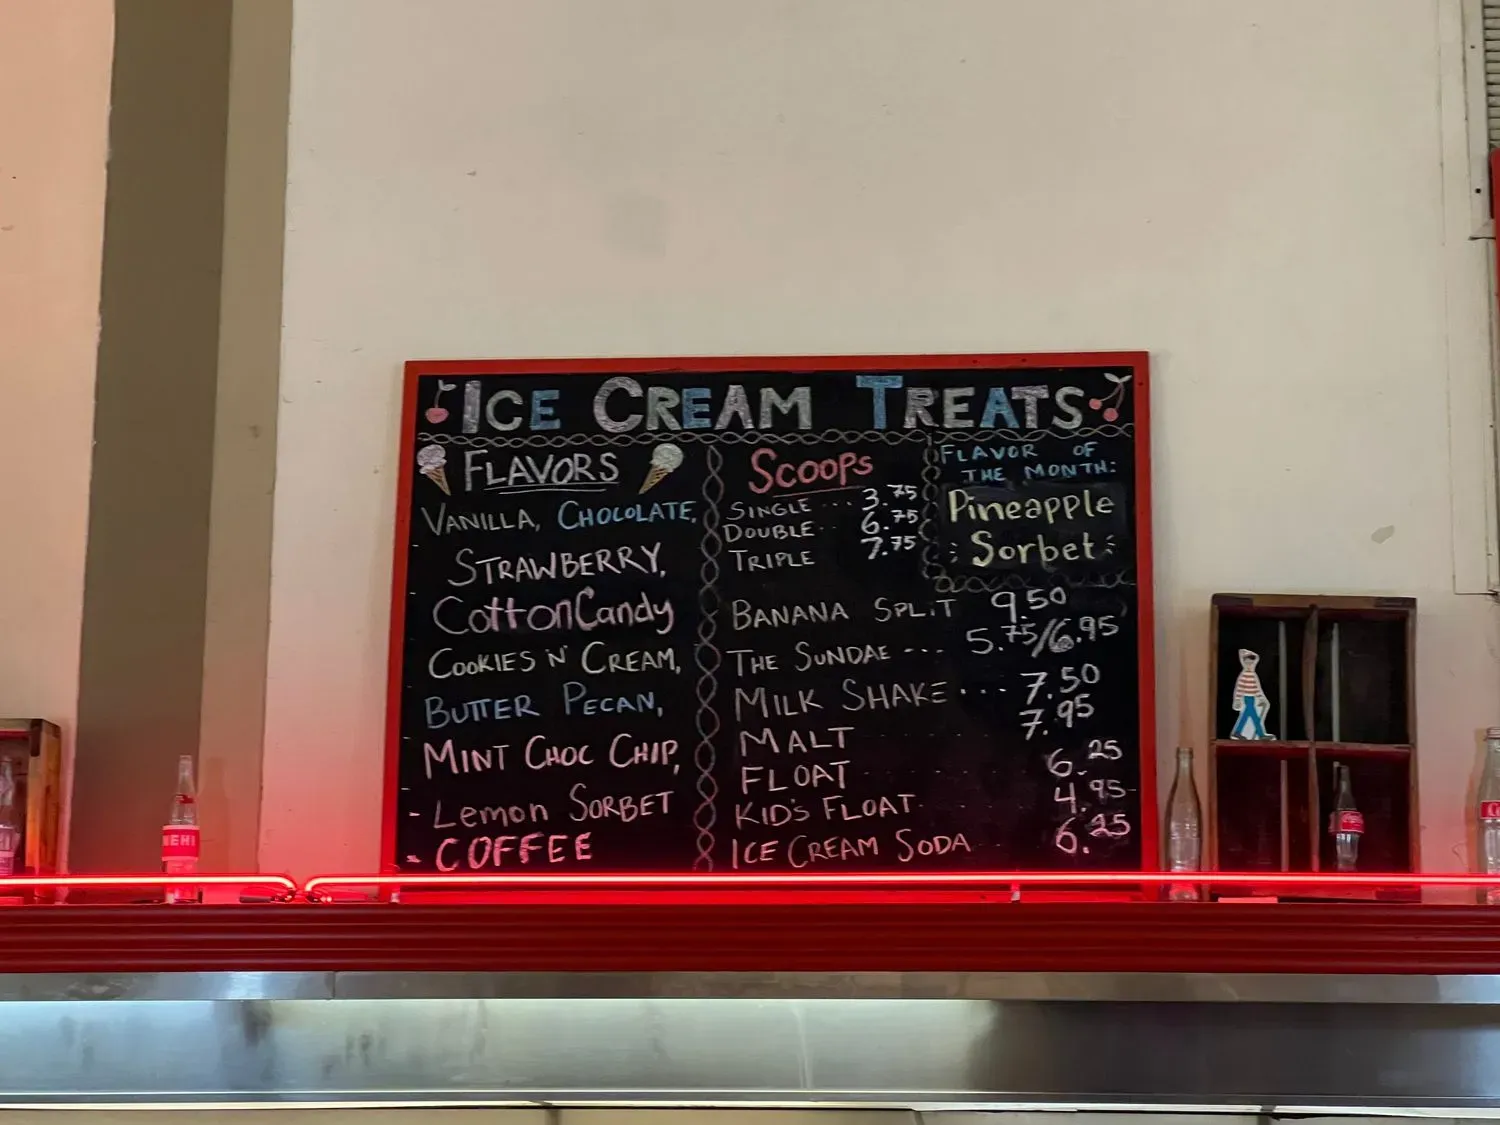 ICE CREAM TREATS
FLAVORS
VANILLA, CHOCOLATE,
STRAWBERRY,
Cotton Candy
COOKIES N' CREAM,
BUTTER PECAN,
MINT CHOC CHIP,
- Lemon SORBET
- COFFEE
SCOOPS
SINGLE ... 3.75
DOUBLE .. 6.75
TRIPLE 7.75
FLAVOR OF
THE MONTH:
Pineapple
Sorbet
BANANA SPLIT 9.50
THE SUNDAE --- 5.75/6.95
MILK SHAKE ... 7.50
MALT 7.95
FLOAT 6.25
KID'S FLOAT 4.95
ICE CREAM SODA 6.25
NEHI